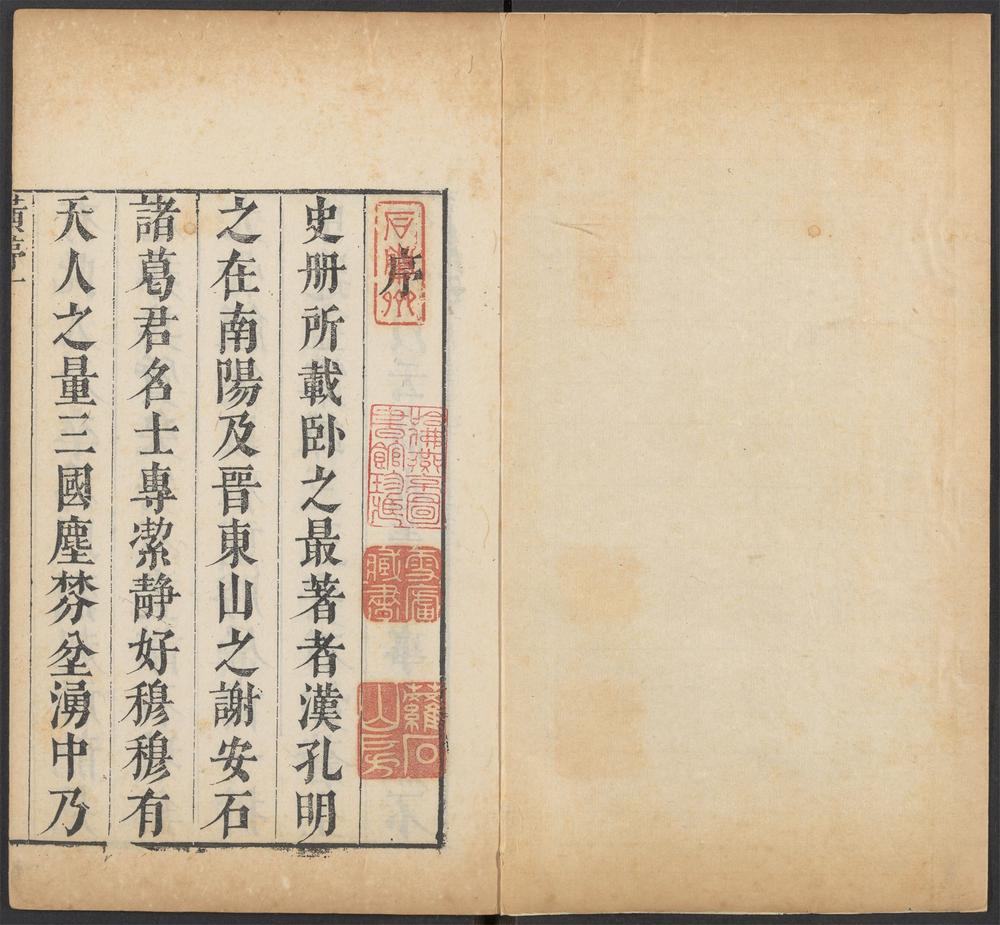 序
史册所載卧之最著者漢孔明
之在南陽及晉東山之謝安石
諸葛君名士專潔静好穆穆有
天人之量三國塵棼坌湧中乃
雪廬
藏書
蘿石
山房